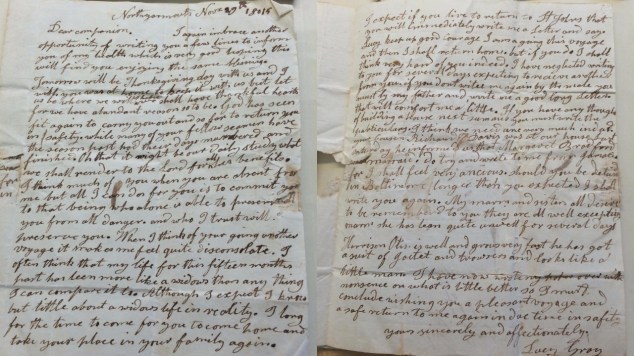 Northyarmouth Nov 29th
Dear companion. I again embrace another
opportunity of writing you a few lines to inform
you of our health which is very good hoping this
will find you enjoying the same blessing.
Tomorrow will be Thanksgiving day with us and I
wish you was at home to keep it with us but let
us be where we will we shall have thankful hearts
for we have abundant reason as the God has seen
fit again to carry you out and so far to return you
in safety while many of your fellow seamen have
the season past had their days numbered and
finished. Oh that it might be our daily study what
we shall render to the Lord for all his benefits.
I think much of you when you are absent from
me but all I can do for you is to commit you
to that being who alone is able to preserve
you from all danger and who I trust will
preserve you. When I think of your going another
voyage it makes me feel quite disconsolate. I
often think that my life for this fifteen months
past has been more like a widows than any thing
I can compare it to. Although I expect I know
but little about a widows life in reality. I long
for the time to come for you to come home and
take your place in your family again.
I expect if you live to return to St Johns that
you will immediately write me a letter and say
Lucy keep up good courage I am going this voyage
and then I shall return home. but if you do I shall
think very hard of you indeed. I have neglected writing
to you for several days expecting to receive another
from you if you dont write me again by the male you
must by my father and write me a good long letter
that will comfort me a little. If you have any thoughts
of building a house next summer you must write the
particulars. I think we need one very much
Davis was at our house last
evening he informed us that Margaret Bradford
was married. Do try and write to me from
for I shall feel very anxious should you be detained
in Baltimore longer than you expected I shall
write you again. My marm and sister all desire
to be remembered to you they are all well except
marm she has been quite unwell for several days
is well and grows very fast he has got
a suit of jacket and trowsers and looks like a
little man. I have now written
nonsense or what is little better so I must
conclude wishing you a pleasant voyage and
a safe return to me again in due time in safety
yours sincerely and affectionately
Lucy Gray